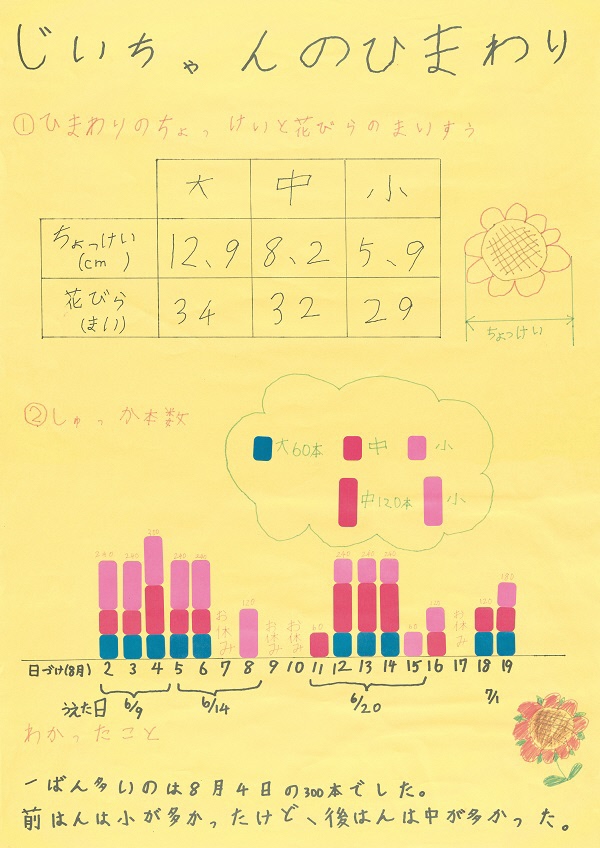 じいちゃんのひまわり
①ひまわりのちょっけいと花びらのまいすう
大 中 小
ちょっけい(cm) 12、9 8、2 5、9
花びら(まい) 34 32 29
ちょっけい
②しゅっか本数
大60本 中 小
中120本 小
240 240 300 240 240 お休み 120 お休み お休み 60 240 240 240 60 120 お休み 120 180
日づけ(8月) 2 3 4 5 6 7 8 9 10 11 12 13 14 15 16 17 18 19
うえた日 6/9 6/14 6/20 7/1
わかったこと
一ばん多いのは8月4日の300本でした。
前はんは小が多かったけど、後はんは中が多かった。